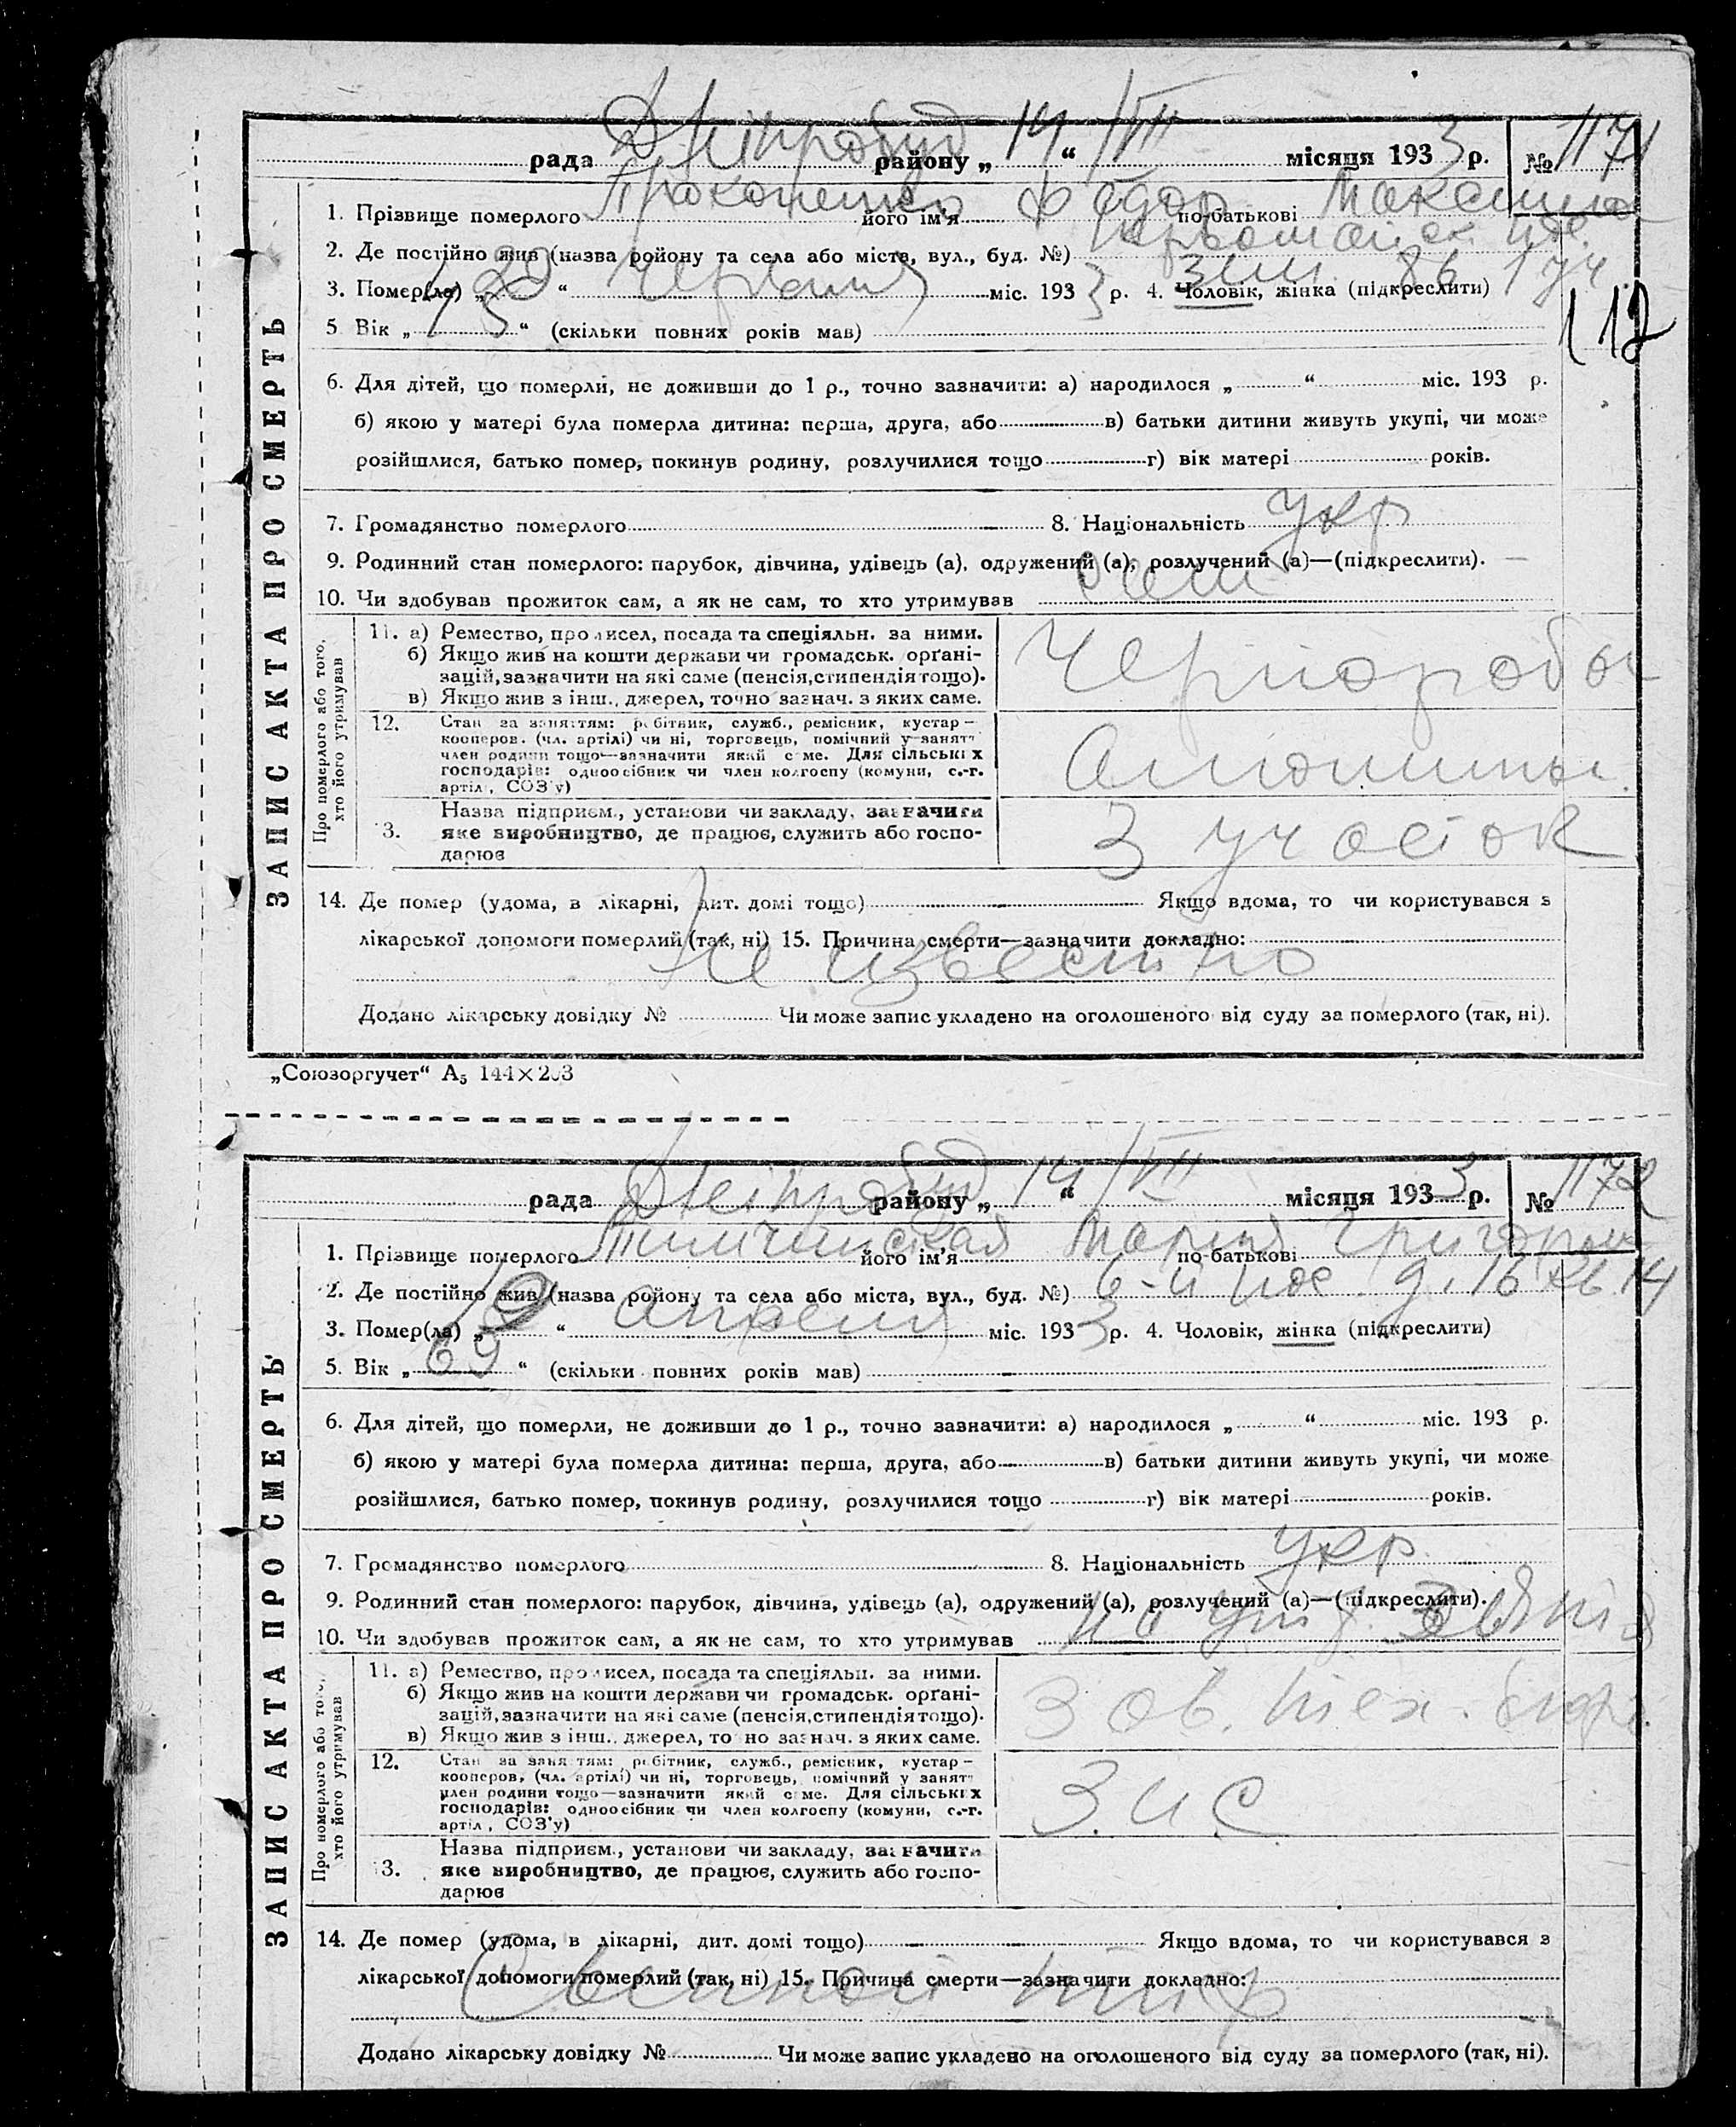 рада Дніпробуд району „ 14 “ /VII місяця 1933 р. № 1171
1. Прізвище померлого Прокопенко його ім'я Федор по-батькові
2. Де постійно жив (назва ройону та села або міста, вул., буд. №)
3. Помер(ла) „ 29 “ червня міс. 1933 р. 4. Чоловік, жінка (підкреслити)
112
5 Вік „ “ (скільки повних років мав)
6. Для дітей, що померли, не доживши до 1 р., точно зазначити: а) народилося „ “ міс. 193 р.
б) якою у матері була померла дитина: перша, друга, або в) батьки дитини живуть укупі, чи може
розійшлися, батько помер, покинув родину, розлучилися тощо г) вік матері років.
7. Громадянство померлого 8. Національність укр
9. Родинний стан померлого: парубок, дівчина, удівець (а), одружений (а), розлучений (а)—(підкреслити).
10. Чи здобував прожиток сам, а як не сам, то хто утримував сам
11. а) Ремество, промисел, посада та спеціяльн. за ними.
б) Якщо жив на кошти держави чи громадськ. орґані-
зацій, зазначити на які саме (пенсія, стипендія тощо).
в) Якщо жив з інш., джерел, точно зазнач. з яких саме.
Чернороб
12. Стан за заняттям: робітник, служб., ремісник, кустар—
кооперов. (чл. артілі) чи ні, торговець, помічний у занятт
член родини тощо—зазначити який саме. Для сільських
господарів: одноосібник чи член колгоспу (комуни, с.-г.
артіл., СОЗ'у)
13. Назва підприєм., установи чи закладу, зазначити
яке виробництво, де працює, служить або госпо-
дарює
3 участок
14. Де помер (удома, в лікарні, дит. домі тощо) Якщо вдома, то чи користувався з
лікарської допомоги померлий (так, ні) 15. Причина смерти—зазначити докладно:
Не известно
Додано лікарську довідку № Чи може запис укладено на оголошеного від суду за померлого (так, ні).
ЗАПИС АКТА ПРО СМЕРТЬ
Про померлого або того,
хто його утримував
„Союзоргучет“ А5 144×203
рада Дніпробуд району „ 14 “ /VII місяця 1933 р. № 1172
1. Прізвище померлого його ім'я Мария по-батькові
2. Де постійно жив (назва ройону та села або міста, вул., буд. №) 6-й пос. д. 16 кв 14
3. Помер(ла) „ 19 “ апреля міс. 1933 р. 4. Чоловік, жінка (підкреслити)
5. Вік „ 65 “ (скільки повних років мав)
6. Для дітей, що померли, не доживши до 1 р., точно зазначити: а) народилося „ “ міс. 193 р.
б) якою у матері була померла дитина: перша, друга, або в) батьки дитини живуть укупі, чи може
розійшлися, батько помер, покинув родину, розлучилися тощо г) вік матері років.
7. Громадянство померлого 8. Національність укр
9. Родинний стан померлого: парубок, дівчина, удівець (а), одружений (а), розлучений (а)—(підкреслити).
10. Чи здобував прожиток сам, а як не сам, то хто утримував на ижд. зятя
11. а) Ремество, промисел, посада та спеціяльн. за ними.
б) Якщо жив на кошти держави чи громадськ. орґані-
зацій, зазначити на які саме (пенсія, стипендія тощо).
в) Якщо жив з інш., джерел, точно зазнач. з яких саме.
Зав. тех. бюро
12. Стан за заняттям: робітник, служб., ремісник, кустар—
кооперов, (чл. артілі) чи ні, торговець, помічний у занятт
член родини тощо—зазначити який саме. Для сільських
господарів: одноосібник чи член колгоспу (комуни, с.-г.
артіл., СОЗ'у)
З.И.С
13. Назва підприєм., установи чи закладу, зазначити
яке виробництво, де працює, служить або госпо-
дарює
14. Де помер (удома, в лікарні, дит. домі тощо) Якщо вдома, то чи користувався з
лікарської допомоги померлий (так, ні) 15. Причина смерти—зазначити докладно:
тиф
Додано лікарську довідку № Чи може запис укладено на оголошеного від суду за померлого (так, ні).
ЗАПИС АКТА ПРО СМЕРТЬ
Про померлого або того,
хто його утримував